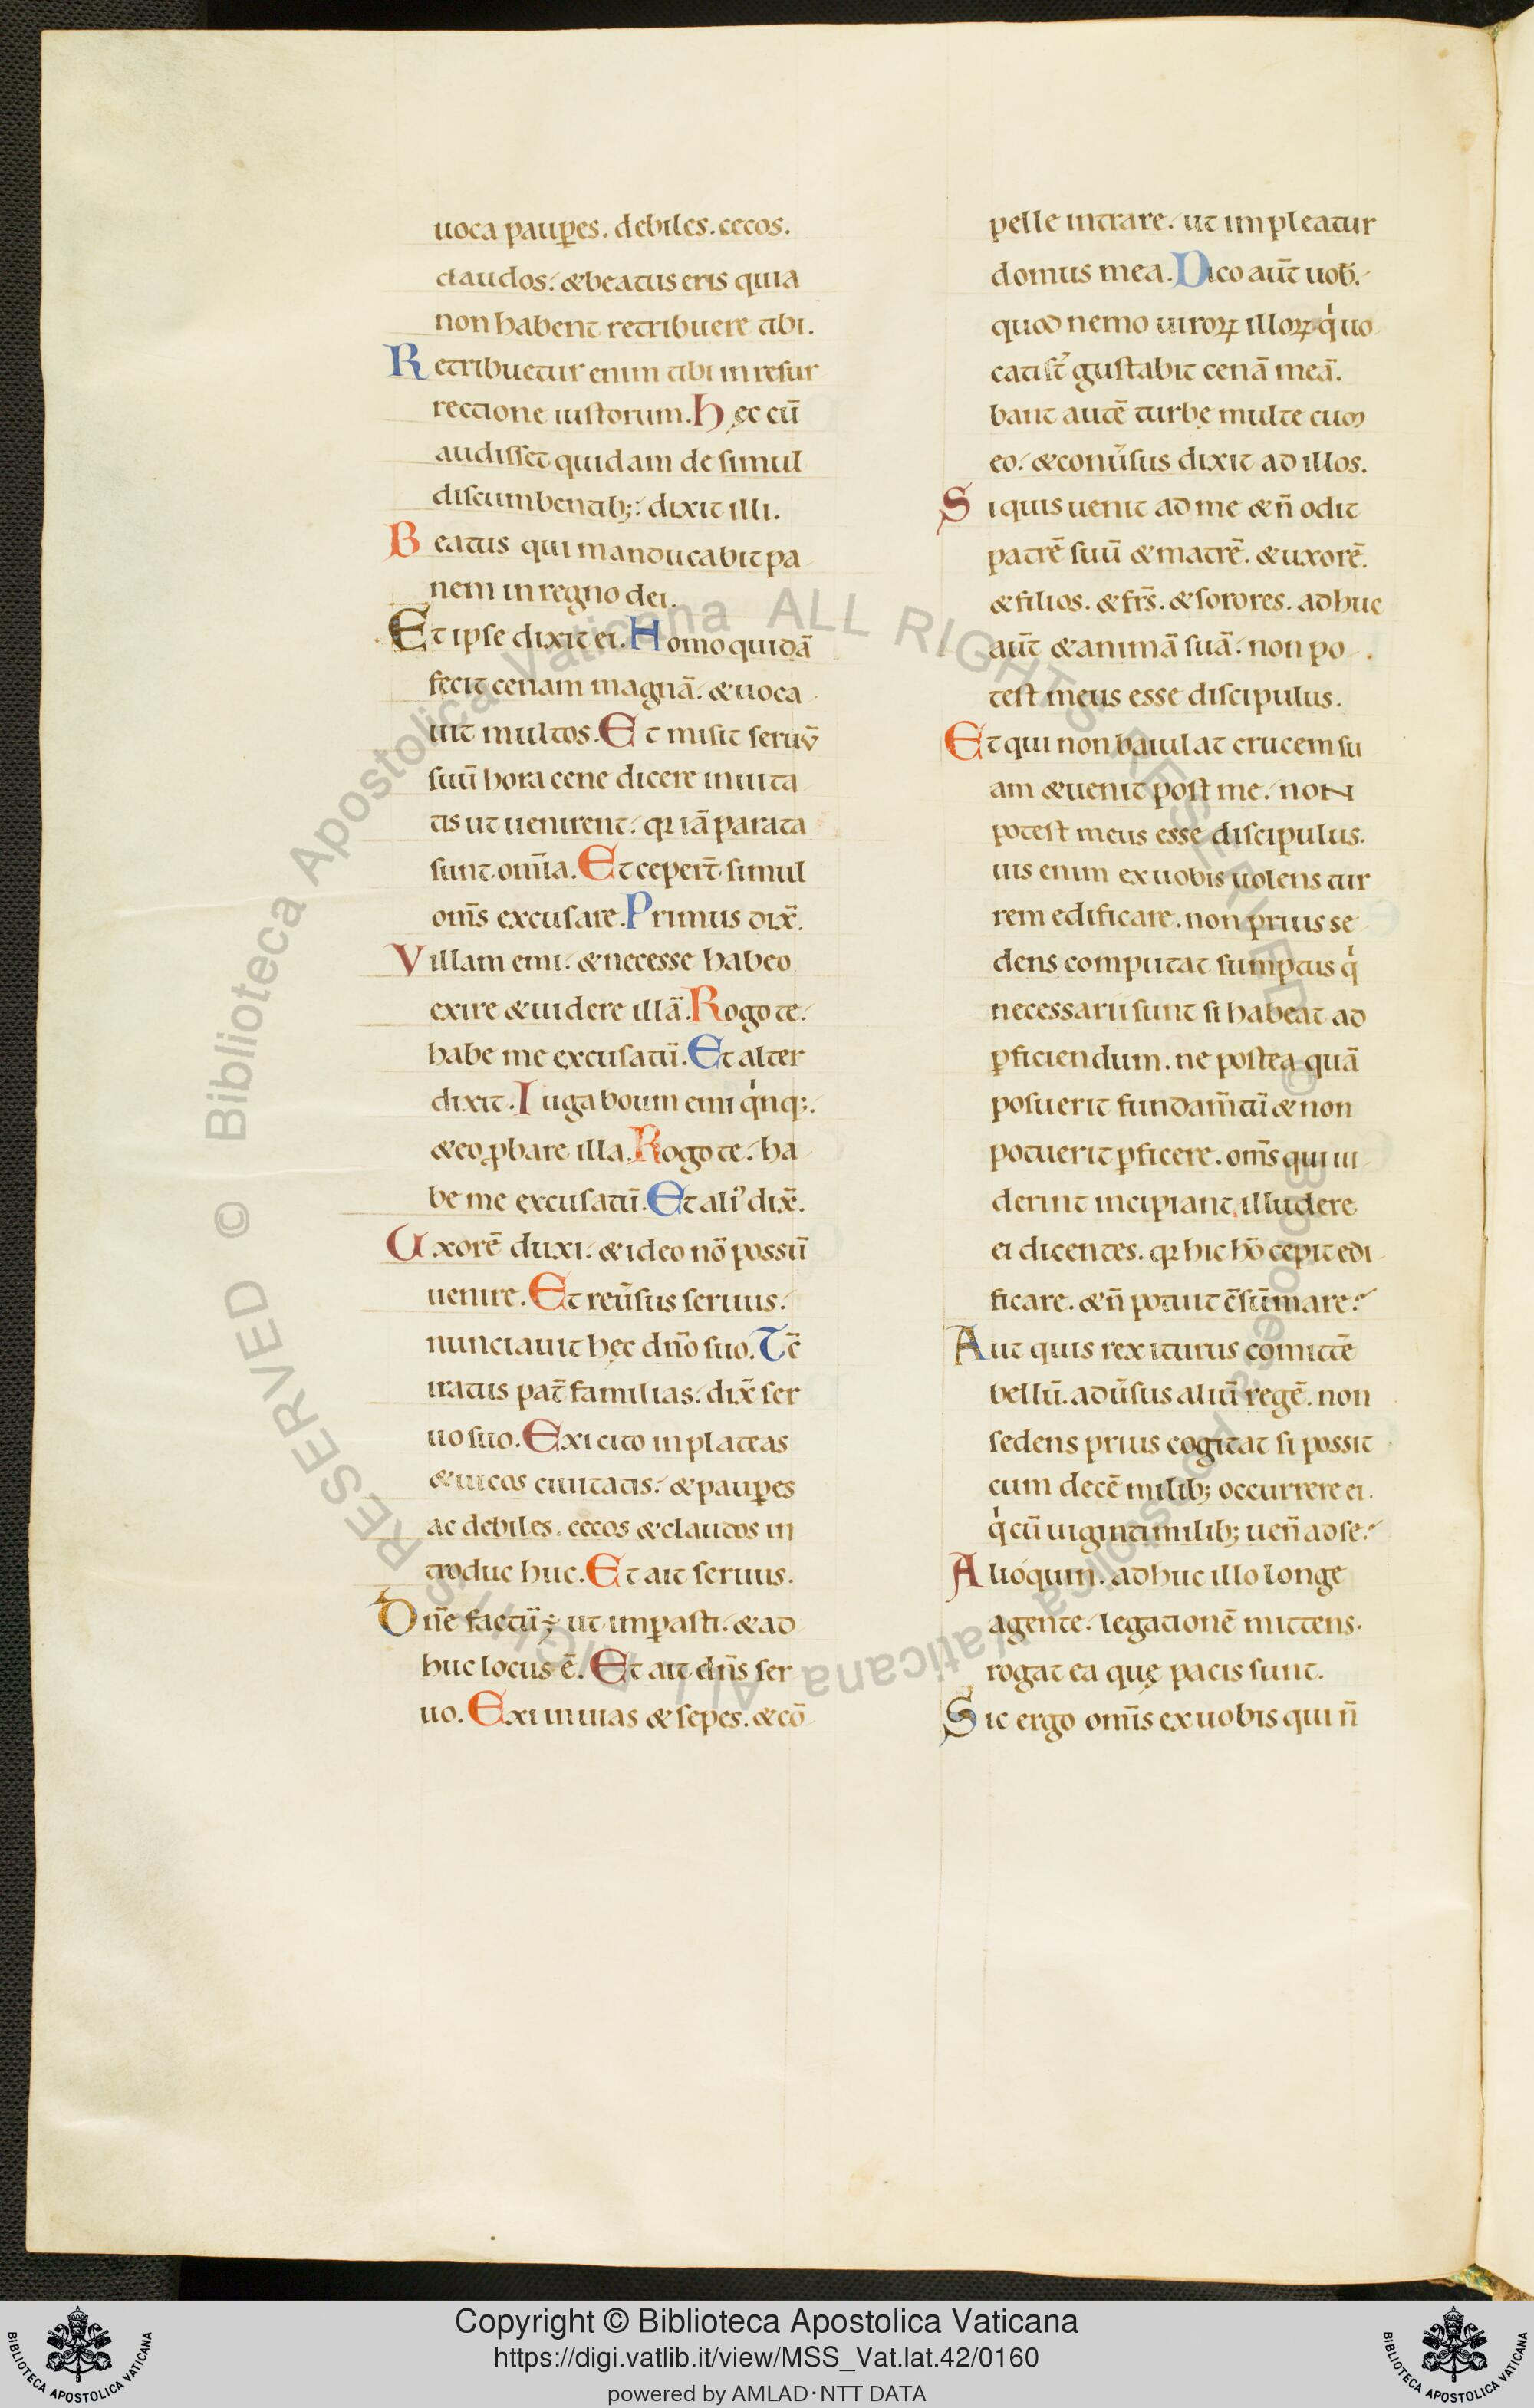 uoca paup̲es. debiles. cecos.
claudos. & beatus eris quia
non habent retribuere tibi.
Retribuetur enim tibi in resur
rectione iustorum. Hęc cū
audisset quidam de simul
discumbentib;. dixit illi.
Beatus qui manducabit pa
nem in regno dei.
Et ipse dixit ei. Homo quidā
fecit cenam magnā. & uoca
uit multos. Et misit seruū
suū hora cene dicere inuita
tis ut uenirent. qꝛ iā parata
sunt om̄ia. Et ceper̄t simul
om̄s excusare. Primus dix̄.
Villam emi. & necesse habeo
exire & uidere illā. Rogo te.
habe me excusatū. Et alter
dixit. Iuga boum emi qͥnq;.
& eo ꝓbare illa. Rogo te. ha
be me excusatū. Et ali᾽ dix̄.
Uxorē duxi. & ideo nō possū
uenire. Et reūsus seruus.
nunciauit hęc dn̄o suo. Tc̄
iratus pat̄ familias. dix̄ ser
uo suo. Exi cito in plateas
& uicos ciuitatis. & pauꝑes
ac debiles. cecos & claudos in
troduc huc. Et ait seruus.
Dn̄e factū ÷ ut imꝑasti. & ad
huc locus ē. Et ait dn̄s ser
uo. Exi in uias & sepes. & cō
pelle intrare. ut impleatur
domus mea. Dico aūt uob̄.
quod nemo uiroꝝ illoꝝ qͥ uo
cati st̄ gustabit cenā meā.
bant autē turbe multe cum
eo. & conūsus dixit ad illos.
Si quis uenit ad me & n̄ odit
patrē suū & matrē. & uxorē.
& filios. & fr̄s. & sorores. adhuc
aūt & animā suā. non po
test meus esse discipulus.
Et qui non baiulat crucem su
am & uenit post me. non
potest meus esse discipulus.
uis enim ex uobis uolens tur
rem edificare. non prius se
dens computat sumptus qͥ
necessarii sunt si habeat ad
ꝑficiendum. ne postea quā
posuerit fundam̄tū & non
potuerit ꝑficere. om̄s qui ui
derint incipiant illudere
ei dicentes. qꝛ hic hō cepit edi
ficare. & n̄ potuit c̄sūmare.
Aut quis rex iturus comittē
bellū. adūsus aliū regē. non
sedens prius cogitat si possit
cum decē milib; occurrere ei.
qͥ cū uiginti milib; uen̄ ad se.
Alioquin. adhuc illo longe
agente. legationē mittens.
rogat ea quę pacis sunt.
Sic ergo om̄is ex uobis qui n̄
© Biblioteca Apostolica Vaticana ALL RIGHTS RESERVED © Biblioteca Apostolica Vaticana ALL RIGHTS RESERVED
Copyright © Biblioteca Apostolica Vaticana
https://digi.vatlib.it/view/MSS_Vat.lat.42/0160
powered by AMLAD·NTT DATA
BIBLIOTECA APOSTOLICA VATICANA
BIBLIOTECA APOSTOLICA VATICANA